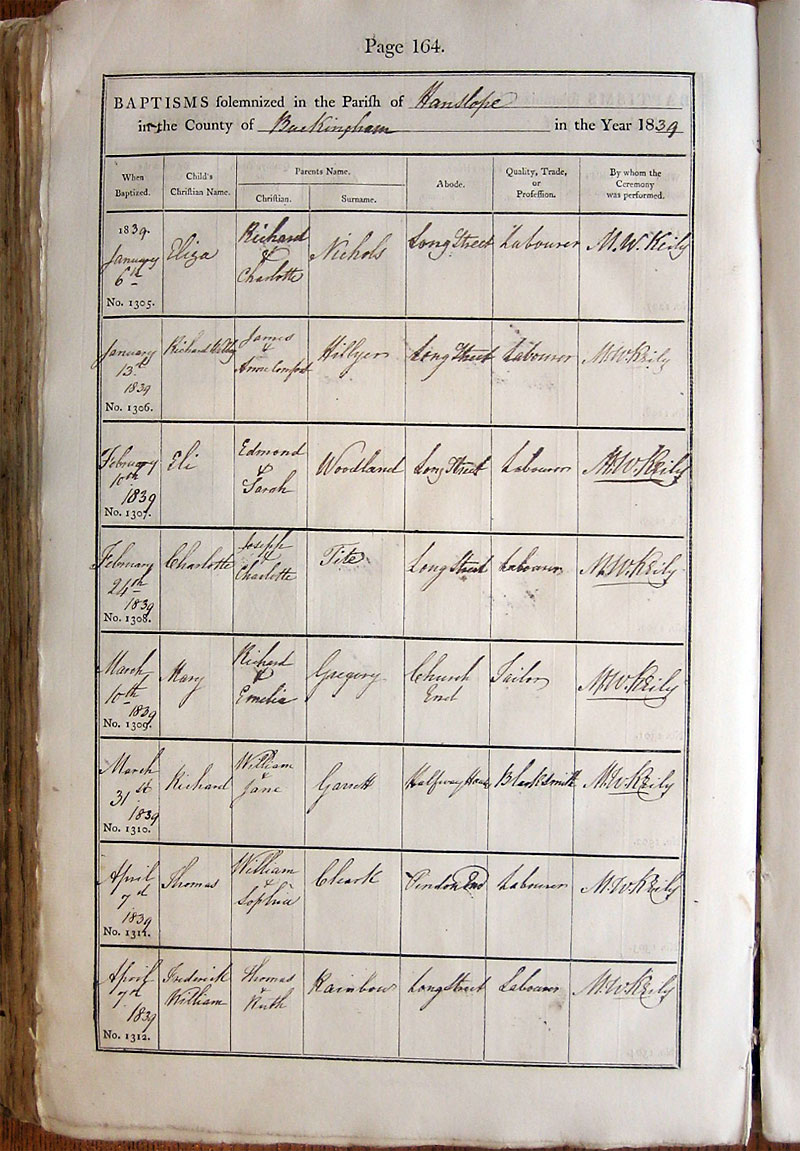 Page 164.
BAPTISMS solemnized in the Parish of Hanslope
in the County of Buckingham in the Year 1839
When Baptized. Child's Christian Name. Parents Name. Abode. Quality, Trade, or Profession. By whom the Ceremony was performed.
Christian. Surname.
1839.
January 6th Eliza Richard & Charlotte Nichols Long Street Labourer M. W. Keily
No. 1305.
January 13th 1839 Richard James & Anne Comfort Hillyer Long Street Labourer M. W. Keily
No. 1306.
February 10th 1839 Eli Edmond & Sarah Woodland Long Street Labourer M. W. Keily
No. 1307.
February 24th 1839 Charlotte Joseph & Charlotte Tite Long Street Labourer M. W. Keily
No. 1308.
March 10th 1839 Mary Richard & Emelia Gregory Church End Tailor M. W. Keily
No. 1309.
March 31st 1839 Richard William & Jane Garrett Halfway House Blacksmith M. W. Keily
No. 1310.
April 7th 1839 Thomas William & Sophia Cheark Pindon End Labourer M. W. Keily
No. 1311.
April 7th 1839 Frederick William Thomas & Ruth Rainbow Long Street Labourer M. W. Keily
No. 1312.